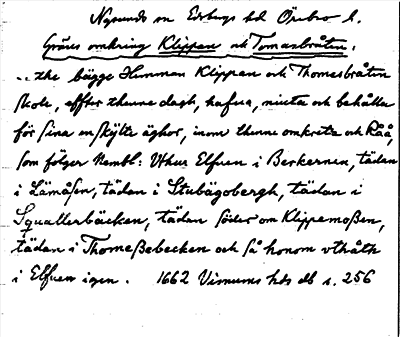 Nysunds sn Edsbergs hd Örebro l.
Gräns omkring Klippen och Tomasbråten.
.. the bägge Hemman Klippen och Thomesbråten
skole, effter thenne dagh, hafua, niuta och behålla
för sina enskÿlte äghor, inom thenne omkrets och Råå,
som fölger Nembl: Uthur Elfuen i Berkernen, tädan
i Lämåsen, tädan i Stubägobergh, tädan i
Squallerbäcken, tädan söder om Klippemoßen,
tädan i Thomeßebecken och så honom vthåth
i Elfuen igen. 1662 Visnums hds db s. 256